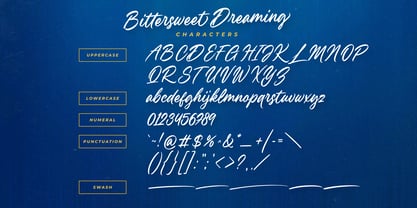 Bittersweet Dreaming
CHARACTERS
UPPERCASE
ABCDEFGHIJKLMNOP
QRSTUVWXYZ
LOWERCASE
abcdefghijklmnopqrstuvwxyz
NUMERAL
0123456789
PUNCTUATION
`~!@#$%^&*_+/-=\
(){}[]:;"'<>?,./
SWASH